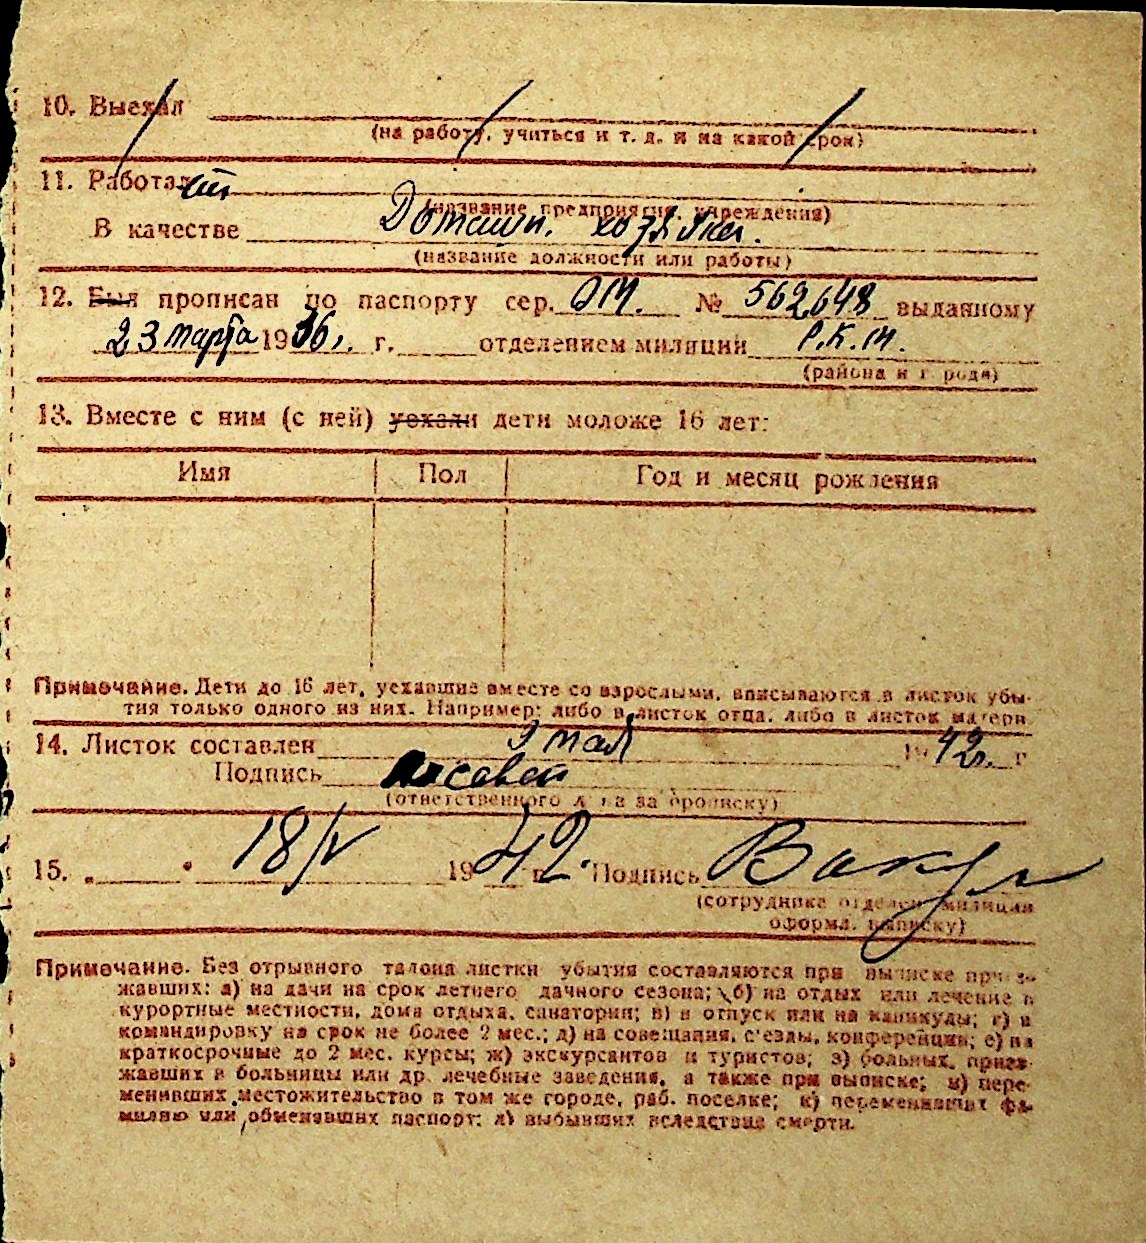 10. Выехал
(на работу, учиться и т. д. и на какой срок)
11. Работал
(название предприятия, учреждения)
В качестве Домашн. хозяйка.
(название должности или работы)
12. Был прописан по паспорту сер. ОМ. № 562648 выданному
23 марта 1936 г. отделением милиции Р.К.М.
(района и города)
13. Вместе с ним (с ней) уехали дети моложе 16 лет:
Имя Пол Год и месяц рождения
Примечание. Дети до 16 лет, уехавшие вместе со взрослыми, вписываются в листок убы-
тия только одного из них. Например: либо в листок отца, либо в листок матери
14. Листок составлен 9 мая 1942 г
Подпись
(ответственного лица за прописку)
15. „ " 18/V 1942 г. Подпись
(сотрудника отделен. милиции
оформл. выписку)
Примечание. Без отрывного талона листки убытия составляются при выписке приез-
жавших: а) на дачи на срок летнего дачного сезона; б) на отдых или лечение в
курортные местности, дома отдыха, санатории; в) в отпуск или на каникулы; г) в
командировку на срок не более 2 мес.; д) на совещания, с'езды, конференции; е) на
краткосрочные до 2 мес. курсы; ж) экскурсантов и туристов; з) больных, приез-
жавших в больницы или др. лечебные заведения, а также при выписке; и) пере-
менивших местожительство в том же городе, раб. поселке; к) переменивших фа-
милию или обменявших паспорт; л) выбывших вследствие смерти.